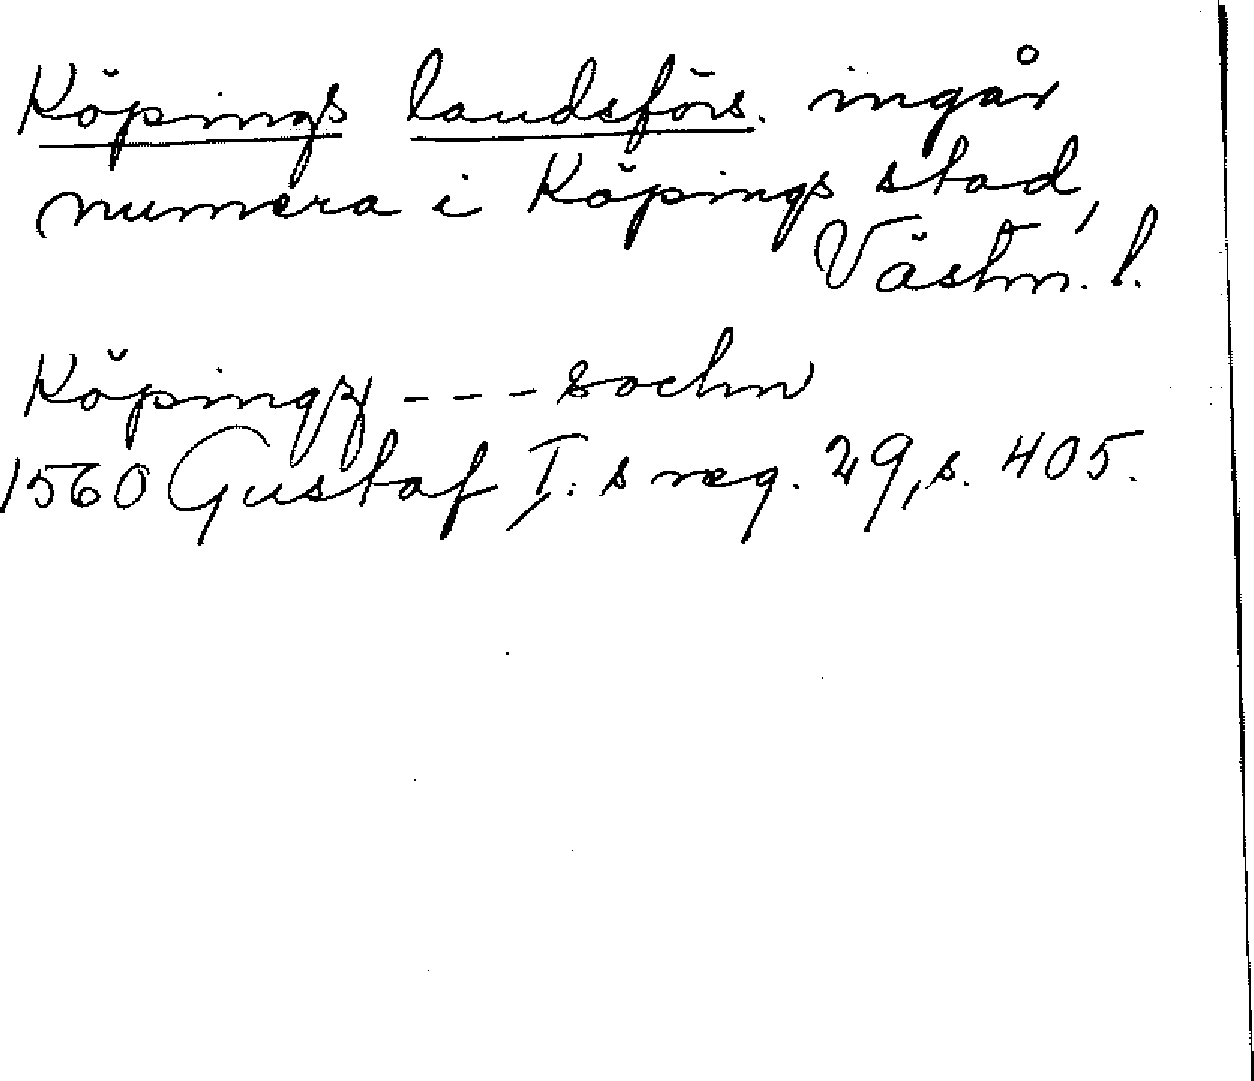 Köpings landsförs. ingår
numera i Köpings stad,
Västm. l.
Köpingz --- sochn
1560 Gustaf I:s reg. 29, s. 405.